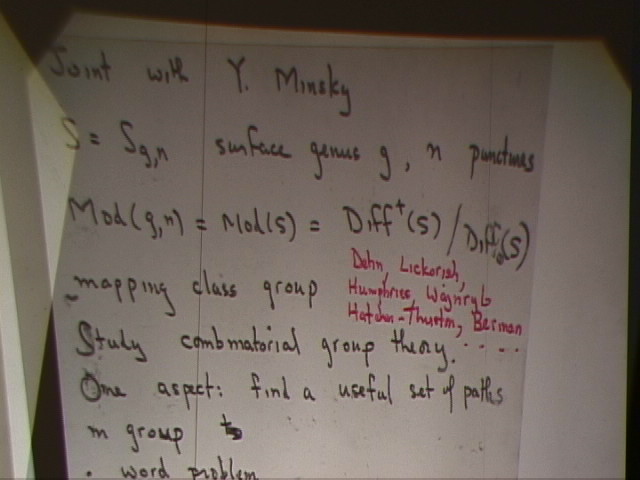 Joint with Y. Minsky
S = S_{g,n} surface genus g, n punctures
Mod(g,n) = Mod(S) = Diff⁺(S) / Diff₀(S)
Dehn, Lickorish,
mapping class group Humphries, Wajnryb
Hatcher-Thurston, Berman
Study combinatorial group theory. . . . .
One aspect: find a useful set of paths
in group to
• word problem